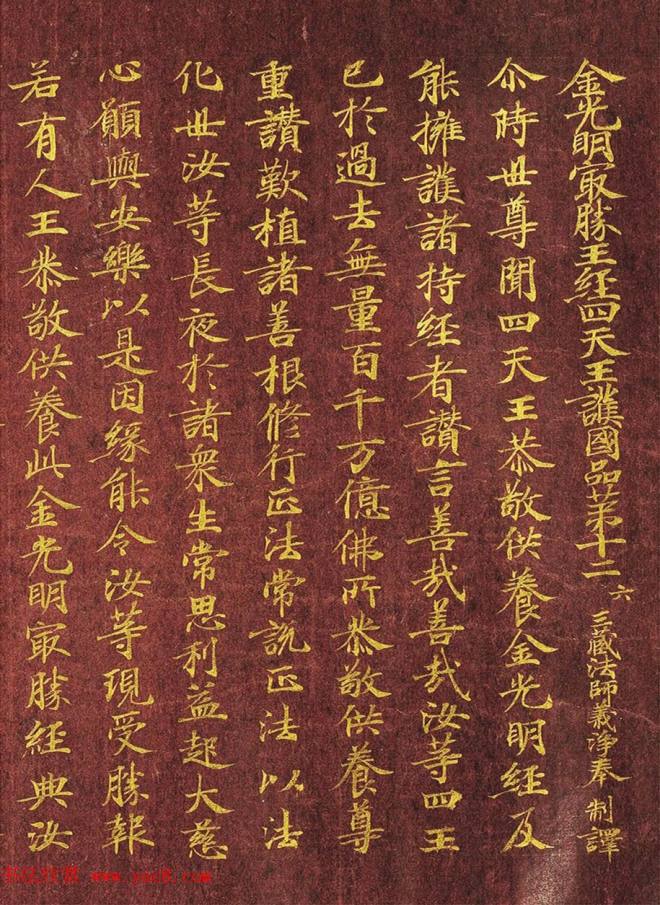 金光明冣勝王經四天王護國品苐十二 六 三蔵法師義淨奉 制譯
尒時世尊聞四天王恭敬供養金光明經及
能擁護諸持經者讚言善㢤善㢤汝等四王
已於過去無量百千万億佛所恭敬供養尊
重讚歎植諸善根修行正法常說正法以法
化世汝等長夜於諸衆生常思利益起大慈
心願與安樂以是因緣能令汝等現受勝報
若有人王恭敬供養此金光明冣勝經典汝
书法欣赏 www.yac8.com